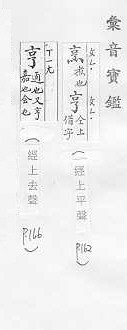 彙音寶鑑
烹 煮也
亨 仝上 借字
（經上平聲）
P162
亨 通也又亨嘉也會也
（經上去聲）
P166